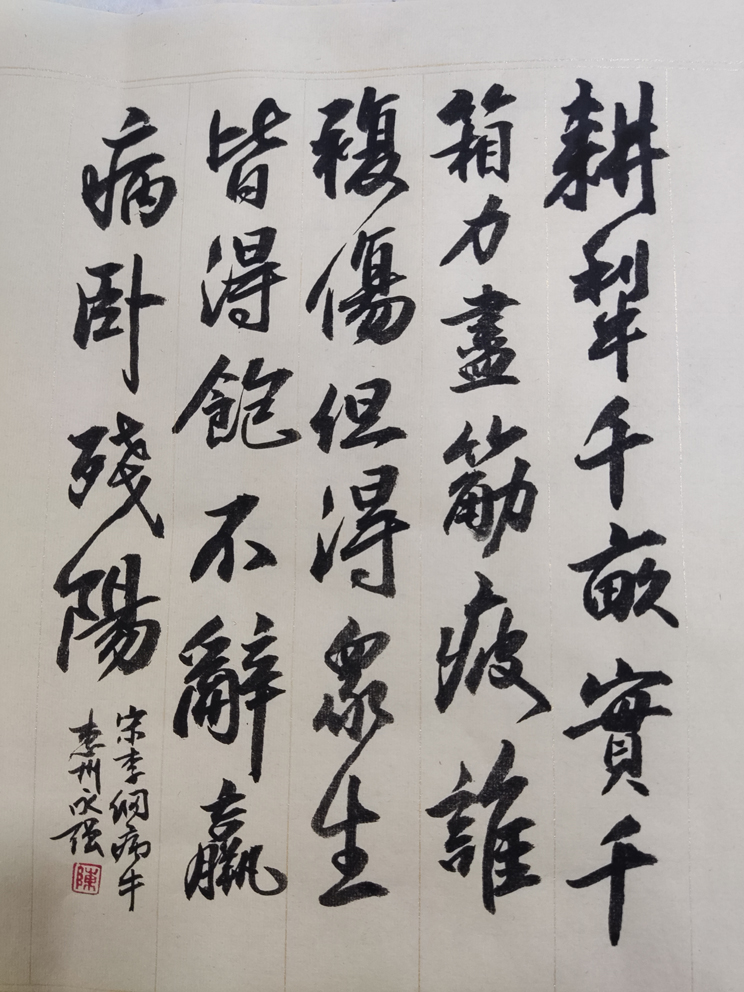 耕犁千畝實千
箱力盡筋疲誰
複傷但得眾生
皆得飽不辭羸
病卧殘陽
宋李綱病牛
惠州咏强
陳